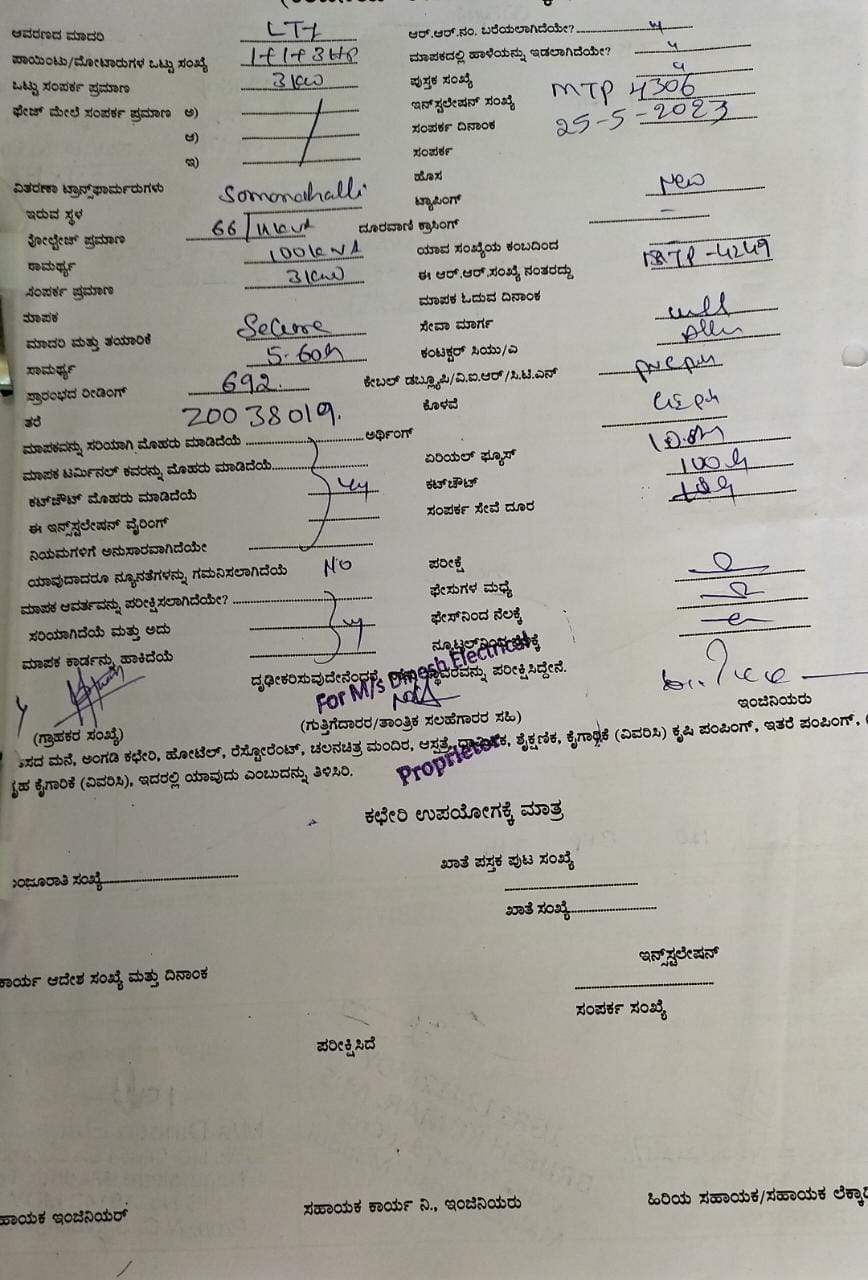 ಆವರಣದ ಮಾದರಿ LT7 ಆರ್.ಆರ್.ನಂ. ಬರೆಯಲಾಗಿದೆಯೇ?
ಪಾಯಿಂಟು/ಮೋಟಾರುಗಳ ಒಟ್ಟು ಸಂಖ್ಯೆ 1+1+3HP ಮಾಪಕದಲ್ಲಿ ಹಾಳೆಯನ್ನು ಇಡಲಾಗಿದೆಯೇ?
ಒಟ್ಟು ಸಂಪರ್ಕ ಪ್ರಮಾಣ 3kw ಪುಸ್ತಕ ಸಂಖ್ಯೆ
ಫೇಚ್ ಮೇಲೆ ಸಂಪರ್ಕ ಪ್ರಮಾಣ ಅ) ಇನ್‌ಸ್ಟಲೇಷನ್ ಸಂಖ್ಯೆ MTP 4306
ಆ) ಸಂಪರ್ಕ ದಿನಾಂಕ 25-5-2023
ಇ) ಸಂಪರ್ಕ
ವಿತರಣಾ ಟ್ರಾನ್ಸ್‌ಫಾರ್ಮರುಗಳು Somanahalli ಹೊಸ New
ಇರುವ ಸ್ಥಳ ಟ್ಯಾಪಿಂಗ್ -
ವೋಲ್ಟೇಚ್ ಪ್ರಮಾಣ 66/11kva ದೂರವಾಣಿ ಕ್ರಾಸಿಂಗ್
ಸಾಮರ್ಥ್ಯ 100kva ಯಾವ ಸಂಖ್ಯೆಯ ಕಂಬದಿಂದ
ಸಂಪರ್ಕ ಪ್ರಮಾಣ 3kw ಈ ಆರ್.ಆರ್.ಸಂಖ್ಯೆ ನಂತರದ್ದು MTP-4249
ಮಾಪಕ ಮಾಪಕ ಓದುವ ದಿನಾಂಕ
ಮಾದರಿ ಮತ್ತು ತಯಾರಿಕೆ Secure ಸೇವಾ ಮಾರ್ಗ
ಸಾಮರ್ಥ್ಯ 5-60A ಕಂಟಕ್ಟರ್ ಸಿಯು/ಎ
ಪ್ರಾರಂಭದ ರೀಡಿಂಗ್ 692. ಕೇಬಲ್ ಡಬ್ಲ್ಯೂಪಿ/ವಿ.ಐ.ಆರ್/ಸಿ.ಟಿ.ಎನ್
ತರೆ 20038019. ಕೊಳವೆ
ಮಾಪಕವನ್ನು ಸರಿಯಾಗಿ ಮೊಹರು ಮಾಡಿದೆಯೆ ಅರ್ಥಿಂಗ್
ಮಾಪಕ ಟರ್ಮಿನಲ್ ಕವರನ್ನು ಮೊಹರು ಮಾಡಿದೆಯೆ ಏರಿಯಲ್ ಫ್ಯೂಸ್
ಕಟ್‌ಚೌಟ್ ಮೊಹರು ಮಾಡಿದೆಯೆ ಕಟ್‌ಚೌಟ್
ಈ ಇನ್‌ಸ್ಟಲೇಷನ್ ವೈರಿಂಗ್ ಸಂಪರ್ಕ ಸೇವೆ ದೂರ
ನಿಯಮಗಳಿಗೆ ಅನುಸಾರವಾಗಿದೆಯೇ
ಯಾವುದಾದರೂ ನ್ಯೂನತೆಗಳನ್ನು ಗಮನಿಸಲಾಗಿದೆಯೆ NO ಪರೀಕ್ಷೆ
ಮಾಪಕ ಆವರ್ತವನ್ನು ಪರೀಕ್ಷಿಸಲಾಗಿದೆಯೇ? ಫೇಸುಗಳ ಮಧ್ಯೆ
ಸರಿಯಾಗಿದೆಯೆ ಮತ್ತು ಅದು ಫೇಸ್‌ನಿಂದ ನೆಲಕ್ಕೆ
ಮಾಪಕ ಕಾರ್ಡನ್ನು ಹಾಕಿದೆಯೆ
ದೃಢೀಕರಿಸುವುದೇನೆಂದರೆ ಪರೀಕ್ಷಿಸಿದ್ದೇನೆ.
For M/s Dinesh Electrical
ಇಂಜಿನಿಯರು
(ಗ್ರಾಹಕರ ಸಂಖ್ಯೆ) (ಗುತ್ತಿಗೆದಾರರ/ತಾಂತ್ರಿಕ ಸಲಹೆಗಾರರ ಸಹಿ)
Proprietor
ಮನೆ, ಅಂಗಡಿ ಕಛೇರಿ, ಹೋಟೆಲ್, ರೆಸ್ಟೋರೆಂಟ್, ಚಲನಚಿತ್ರ ಮಂದಿರ, ಆಸ್ಪತ್ರೆ, ಶೈಕ್ಷಣಿಕ, ಕೈಗಾರಿಕೆ (ವಿವರಿಸಿ) ಕೃಷಿ ಪಂಪಿಂಗ್, ಇತರೆ ಪಂಪಿಂಗ್,
ಕೈಗಾರಿಕೆ (ವಿವರಿಸಿ), ಇದರಲ್ಲಿ ಯಾವುದು ಎಂಬುದನ್ನು ತಿಳಿಸಿರಿ.
ಕಛೇರಿ ಉಪಯೋಗಕ್ಕೆ ಮಾತ್ರ
ಸಂಖ್ಯೆ ಖಾತೆ ಪಸ್ತಕ ಪುಟ ಸಂಖ್ಯೆ
ಖಾತೆ ಸಂಖ್ಯೆ
ಕಾರ್ಯ ಆದೇಶ ಸಂಖ್ಯೆ ಮತ್ತು ದಿನಾಂಕ ಇನ್‌ಸ್ಟಲೇಷನ್
ಸಂಪರ್ಕ ಸಂಖ್ಯೆ
ಪರೀಕ್ಷಿಸಿದೆ
ಇಂಜಿನಿಯರ್ ಸಹಾಯಕ ಕಾರ್ಯ ನಿ., ಇಂಜಿನಿಯರು ಹಿರಿಯ ಸಹಾಯಕ/ಸಹಾಯಕ